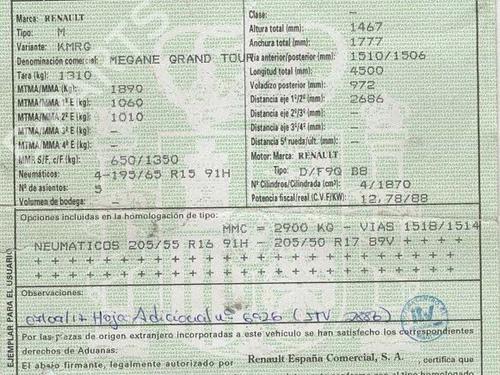 Marca: RENAULT
Tipo: M
Variante: KMRG
Denominación comercial: MEGANE GRAND TOUR
Tara (kg): 1310
MTMA/MMA (Kg): 1890
MTMA/MMA 1ª E (kg): 1060
MTMA/MMA 2ª E (kg): 1010
MTMA/MMA 3ª E (kg): -
MTMA/MMA 4ª E (kg): -
MMR S/F, c/F (kg): 650/1350
Neumáticos: 4-195/65 R15 91H
Nº de asientos: 5
Volumen de bodega: -
Clase: -
Altura total (mm): 1467
Anchura total (mm): 1777
Vía anterior/posterior (mm): 1510/1506
Longitud total (mm): 4500
Voladizo posterior (mm): 972
Distancia eje 1º/2º (mm): 2686
Distancia eje 2º/3º (mm): -
Distancia eje 3º/4º (mm): -
Distancia 5ª rueda/ult. (mm): -
Motor: Marca: RENAULT
Tipo: D/F9Q B8
Nº Cilindros/Cilindrada (cm³): 4/1870
Potencia fiscal/real (C.V.F/KW): 12,78/88
Opciones incluidas en la homologación de tipo:
MMC = 2900 KG - VIAS 1518/1514
NEUMATICOS 205/55 R16 91H - 205/50 R17 89V + + + +
+ + + + + + + + + + + + + + + + + + + + + + +
+ + + + + + + + + + + + + + + + + + + + + + +
Observaciones:
Hoja Adicional nº 6926 (ITV 2886)
Por las piezas de origen extranjero incorporadas a este vehículo se han satisfecho los correspondientes
derechos de Aduanas.
El abajo firmante, legalmente autorizado por Renault España Comercial, S. A. , certifica que
EJEMPLAR PARA EL USUARIO